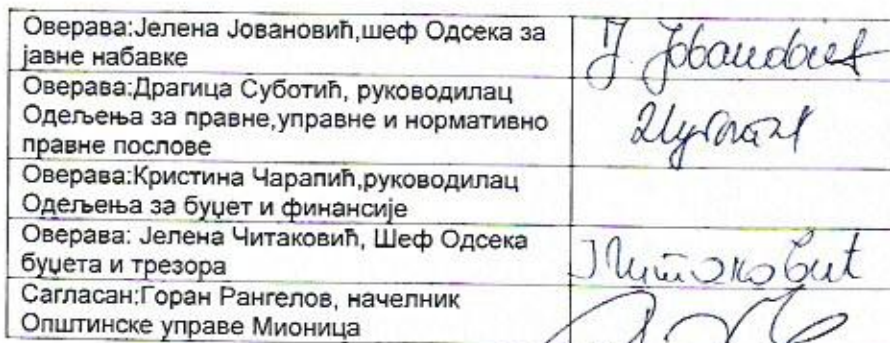 Оверава:Јелена Јовановић,шеф Одсека за
јавне набавке
Ј. Јовановић
Оверава:Драгица Суботић, руководилац
Одељења за правне,управне и нормативно
правне послове
Оверава:Кристина Чарапић,руководилац
Одељења за буџет и финансије
Оверава: Јелена Читаковић, Шеф Одсека
буџета и трезора
Ј Читаковић
Сагласан:Горан Рангелов, начелник
Општинске управе Мионица